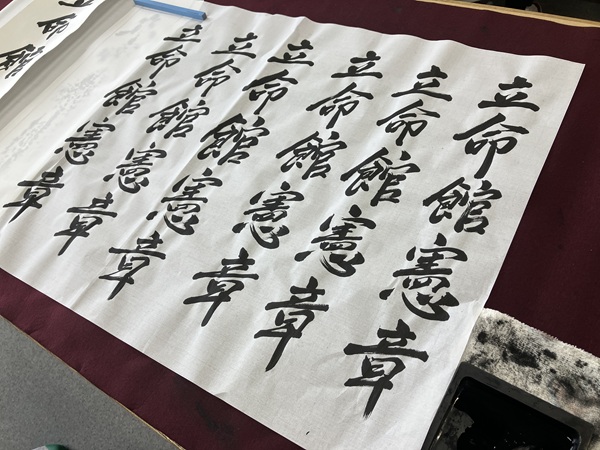 立命館憲章
立命館憲章
立命館憲章
立命館憲章
立命館憲章
立命館憲章
立命館